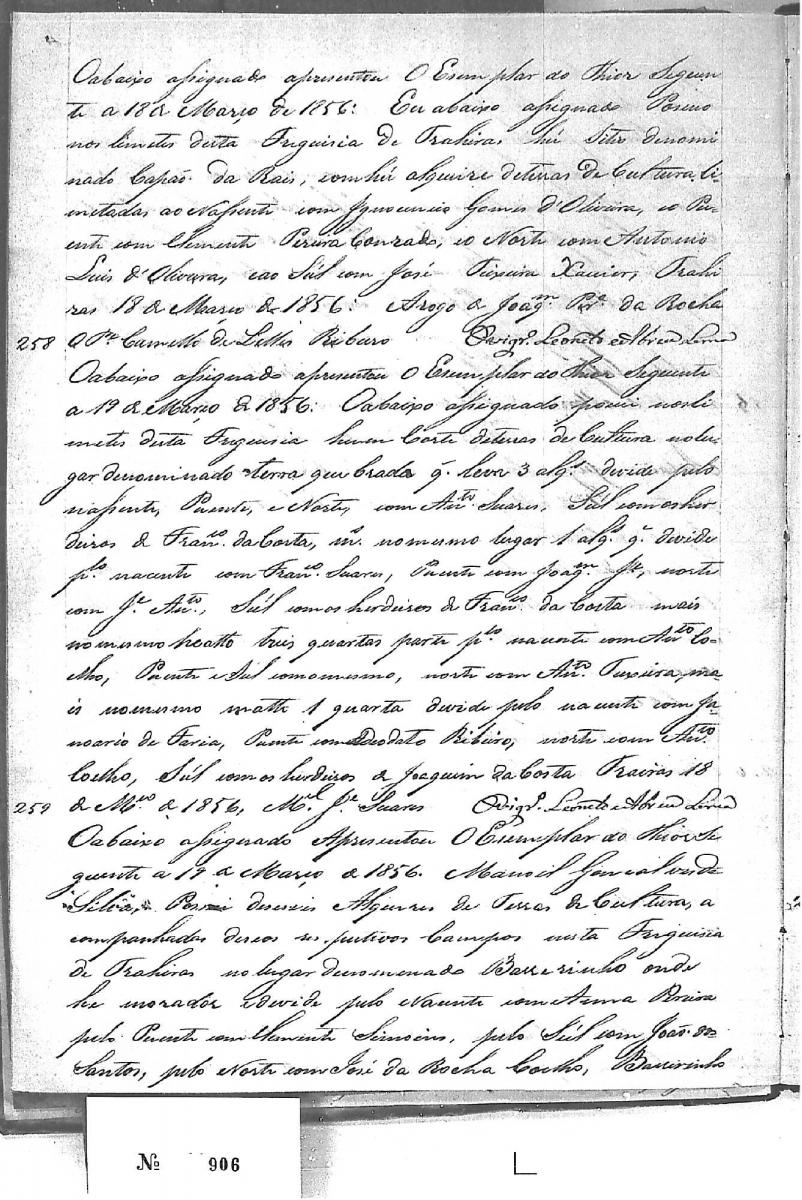 Oabaixo assignado apresentou O Esemplar do Thior Seguin-
te a 18 de Março de 1856: Eu abaixo assignado Posuo
nos limetes desta Friguisia de Trahiras hú Sitio denomi-
nado Capão da Rais, com hú alquire deterras de Cultura li-
metadas ao Nassente com Ignocencio Gomes d'Oliveira, eo Pu-
ente com Clemente Pereira Conrado, eo Norte com Antonio
Luis d'Olivera, eao Súl com José Teixeira Xavier, Trahi-
ras 18 de Março de 1856: Arogo de Joaqm Pra da Rocha
258 O Pe Camello de Lellis Ribeiro Ovigro Leoneto e Abreu Lima
Oabaixo assignado apresentou O Esemplar do Thior Seguente
a 19 de Março de 1856: Oabaixo assignado posui nosli-
metes desta Friguisia hum Corte deterras de Cultura nolu-
gar denominado terra quebrada q. leva 3 alqs devide pelo
nassente, Puente, e Norte, com Anto Suares, Súl comosher-
deiros de Franco da Costa, mo nomesmo lugar 1 alqe q. devide
plo nacente com Franco Suares, Puente com Joaqm Je, norte
com Je Anto, Súl comosherdeiros de Franco da Costa mais
nomesmo matto tres quartas parte plo nacente com Anto Co-
elho, Puente e Súl comomesmo, norte com Anto Teixeira, ma-
is nomesmo matto 1 quarta devide pelo nacente com Ja-
noario de Faria, Puente com Deodato Ribeiro, norte com Anto
Coelho, Súl comosherdeiros de Joaquim da Costa Trairas 18
259 de Mço de 1856, Mel Je Suares Ovigro Leoneto e Abreu Lima
Oabaixo assignado Apresentou O Esemplar do Thior Se-
guente a 19 de Março de 1856. Manoel Goncalves de
Silva, Posui deseseis Alqueres de Terras de Cultura, a
companhadas deseos respectivos Campos nesta Friguisia
de Trahiras no lugar denomenado Barrerinho onde
he morador edevide pelo Nacente com Anna Pereira
pelo Puente com Clemente Simoens, pelo Súl com João dos
Santos, pelo Norte com José da Rocha Coelho, Barreirinho
No 906